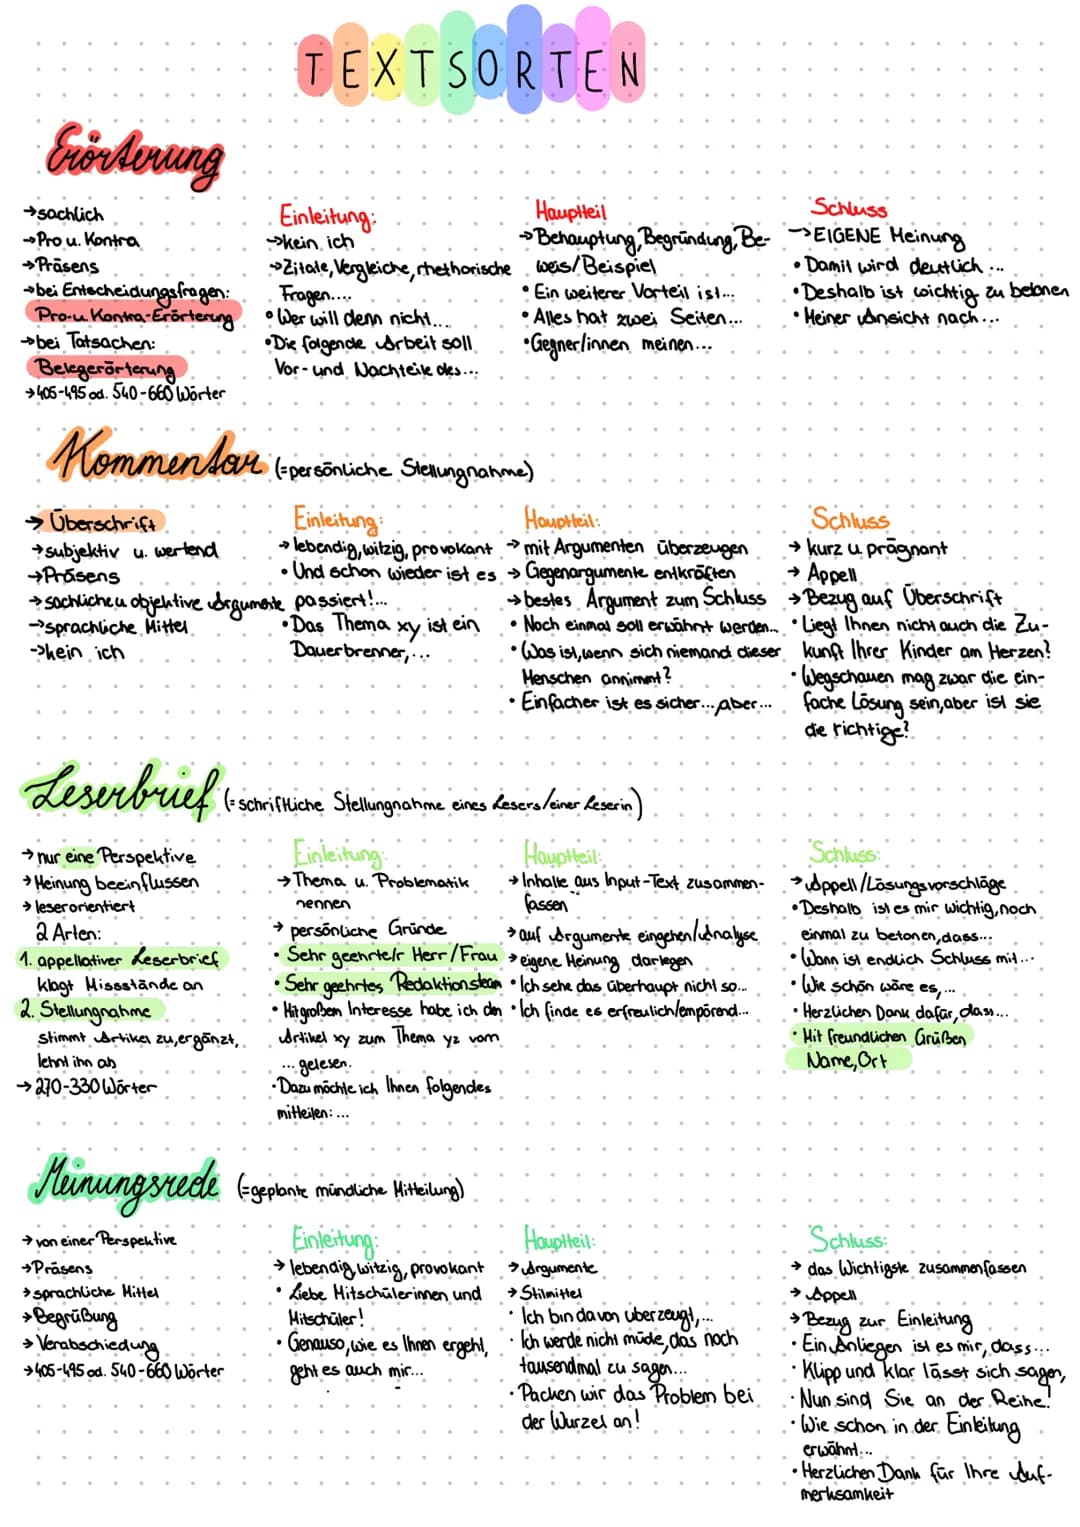 TEXTSORTEN
Erörterung
→sachlich
→Pro u. Kontra
→Präsens
→bei Entscheidungsfragen:
Pro-u. Kontra-Erörterung
→bei Tatsachen:
Belegerörterung
→405-495 od. 540-660 Wörter
Einleitung:
→kein ich
→Zitate, Vergleiche, rhethorische
Fragen....
• Wer will denn nicht...
•Die folgende Arbeit soll
Vor- und Nachteile des...
Hauptteil
→Behauptung, Begründung, Be-
weis/Beispiel
• Ein weiterer Vorteil ist...
• Alles hat zwei Seiten...
•Gegner/innen meinen...
Schluss
→EIGENE Meinung
• Damit wird deutlich...
•Deshalb ist wichtig zu betonen
• Meiner Ansicht nach...
Kommentar (=persönliche Stellungnahme)
→ Überschrift
→subjektiv u. wertend
→Präsens
→ sachliche u objektive Argumente
→sprachliche Mittel
→kein ich
Einleitung:
→ lebendig, witzig, provokant
• Und schon wieder ist es
passiert!...
•Das Thema xy ist ein
Dauerbrenner,...
Hauptteil:
→ mit Argumenten überzeugen
→ Gegenargumente entkräften
→ bestes Argument zum Schluss
• Noch einmal soll erwähnt werden...
• Was ist, wenn sich niemand dieser
Menschen annimmt?
• Einfacher ist es sicher... aber...
Schluss
→ kurz u prägnant
→ Appell
→Bezug auf Überschrift
• Liegt Ihnen nicht auch die Zu-
kunft Ihrer Kinder am Herzen?
• Wegschauen mag zwar die ein-
fache Lösung sein, aber ist sie
die richtige?
Leserbrief (=schriftliche Stellungnahme eines Lesers/einer Leserin)
→ nur eine Perspektive
→ Meinung beeinflussen
→ leserorientiert
2 Arten:
1. appellativer Leserbrief
klagt Missstände an
2. Stellungnahme
stimmt Artikel zu, ergänzt,
lehnt ihn ab
→ 270-330 Wörter
Einleitung:
→ Thema u. Problematik
nennen
→ persönliche Gründe
• Sehr geehrte/r Herr/Frau
• Sehr geehrtes Redaktionsteam
• Mit großem Interesse habe ich den
Artikel xy zum Thema yz vom
... gelesen.
•Dazu möchte ich Ihnen folgendes
mitteilen: ...
Hauptteil:
→ Inhalte aus Input-Text zusammen-
fassen
→ auf Argumente eingehen/Analyse
→ eigene Meinung darlegen
• Ich sehe das überhaupt nicht so...
• Ich finde es erfreulich/empörend...
Schluss:
→ Appell/Lösungsvorschläge
• Deshalb ist es mir wichtig, noch
einmal zu betonen, dass...
• Wann ist endlich Schluss mit...
• Wie schön wäre es,...
• Herzlichen Dank dafür, dass...
• Mit freundlichen Grüßen
Name, Ort
Meinungsrede (=geplante mündliche Mitteilung)
→ von einer Perspektive
→Präsens
→ sprachliche Mittel
→Begrüßung
→ Verabschiedung
→405-495 od. 540-660 Wörter
Einleitung:
→ lebendig, witzig, provokant
• Liebe Mitschülerinnen und
Mitschüler!
• Genauso, wie es Ihnen ergeht,
geht es auch mir...
Hauptteil:
→ Argumente
→ Stilmittel
• Ich bin davon überzeugt,...
• Ich werde nicht müde, das noch
tausendmal zu sagen...
• Packen wir das Problem bei
der Wurzel an!
Schluss:
→ das Wichtigste zusammenfassen
→ Appell
→Bezug zur Einleitung
• Ein Anliegen ist es mir, dass...
• Klipp und klar lässt sich sagen,
• Nun sind Sie an der Reihe!
• Wie schon in der Einleitung
erwähnt...
• Herzlichen Dank für Ihre Auf-
merksamkeit